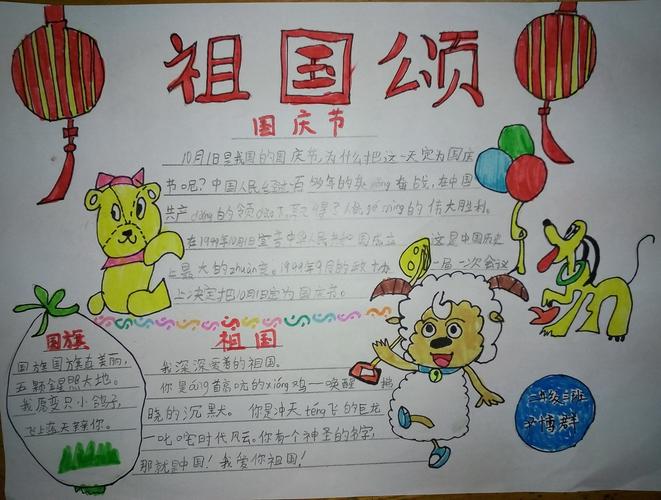 祖国颂
国庆节
10月1日是我国的国庆节,为什么把这一天定为国庆
节呢?中国人民经过百多年的英yǒng奋战,在中国
共产dǎng的领dǎo下,取得了人民gé mìng的伟大胜利。
在1949年10月1日宣告中华人民共和国成立 这是中国历史
上最大的zhuǎn变。1949年9月的政协 一届一次会议
上决定把10月1日定为国庆节。
国旗
国旗国旗真美丽,
五颗金星照大地。
我愿变只小鸽子,
飞上蓝天亲亲你。
祖国
我深深爱着的祖国。
你是áng首高吭的xióng鸡——唤醒 拂
晓的沉默。你是冲天téng飞的巨龙
一叱咤时代风云。你有一个神圣的名字,
那就是中国!我爱你祖国!
博群